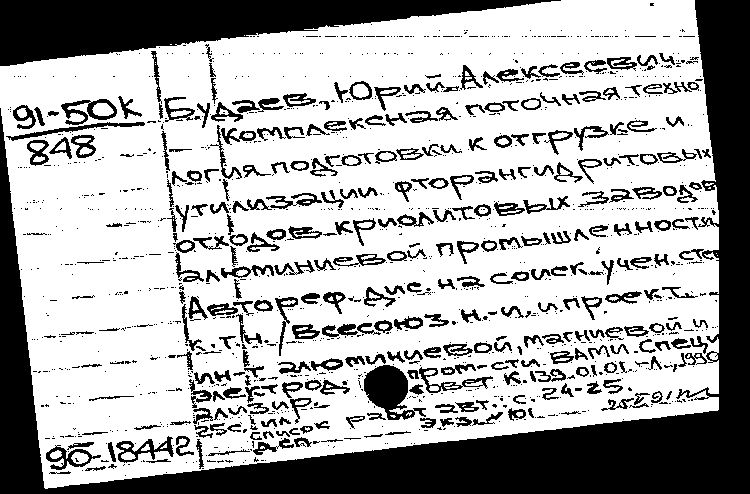 91-50К
848
Будаев, Юрий Алексеевич
Комплексная поточная техно-
логия подготовки к отгрузке и
утилизации фторангидритовых
отходов криолитовых заводов
алюминиевой промышленности:
Автореф. дис. на соиск. учен. степ
к.т.н. / Всесоюз. н.-и. и проект.
ин-т алюминиевой, магниевой и
электрод. пром-сти ВАМИ. Спец
ализир. совет К.139.01.01.-Л., 1990
25с.: ил.
список работ авт.: с. 24-25.
Д.сп. экз. № 101
9б-18442